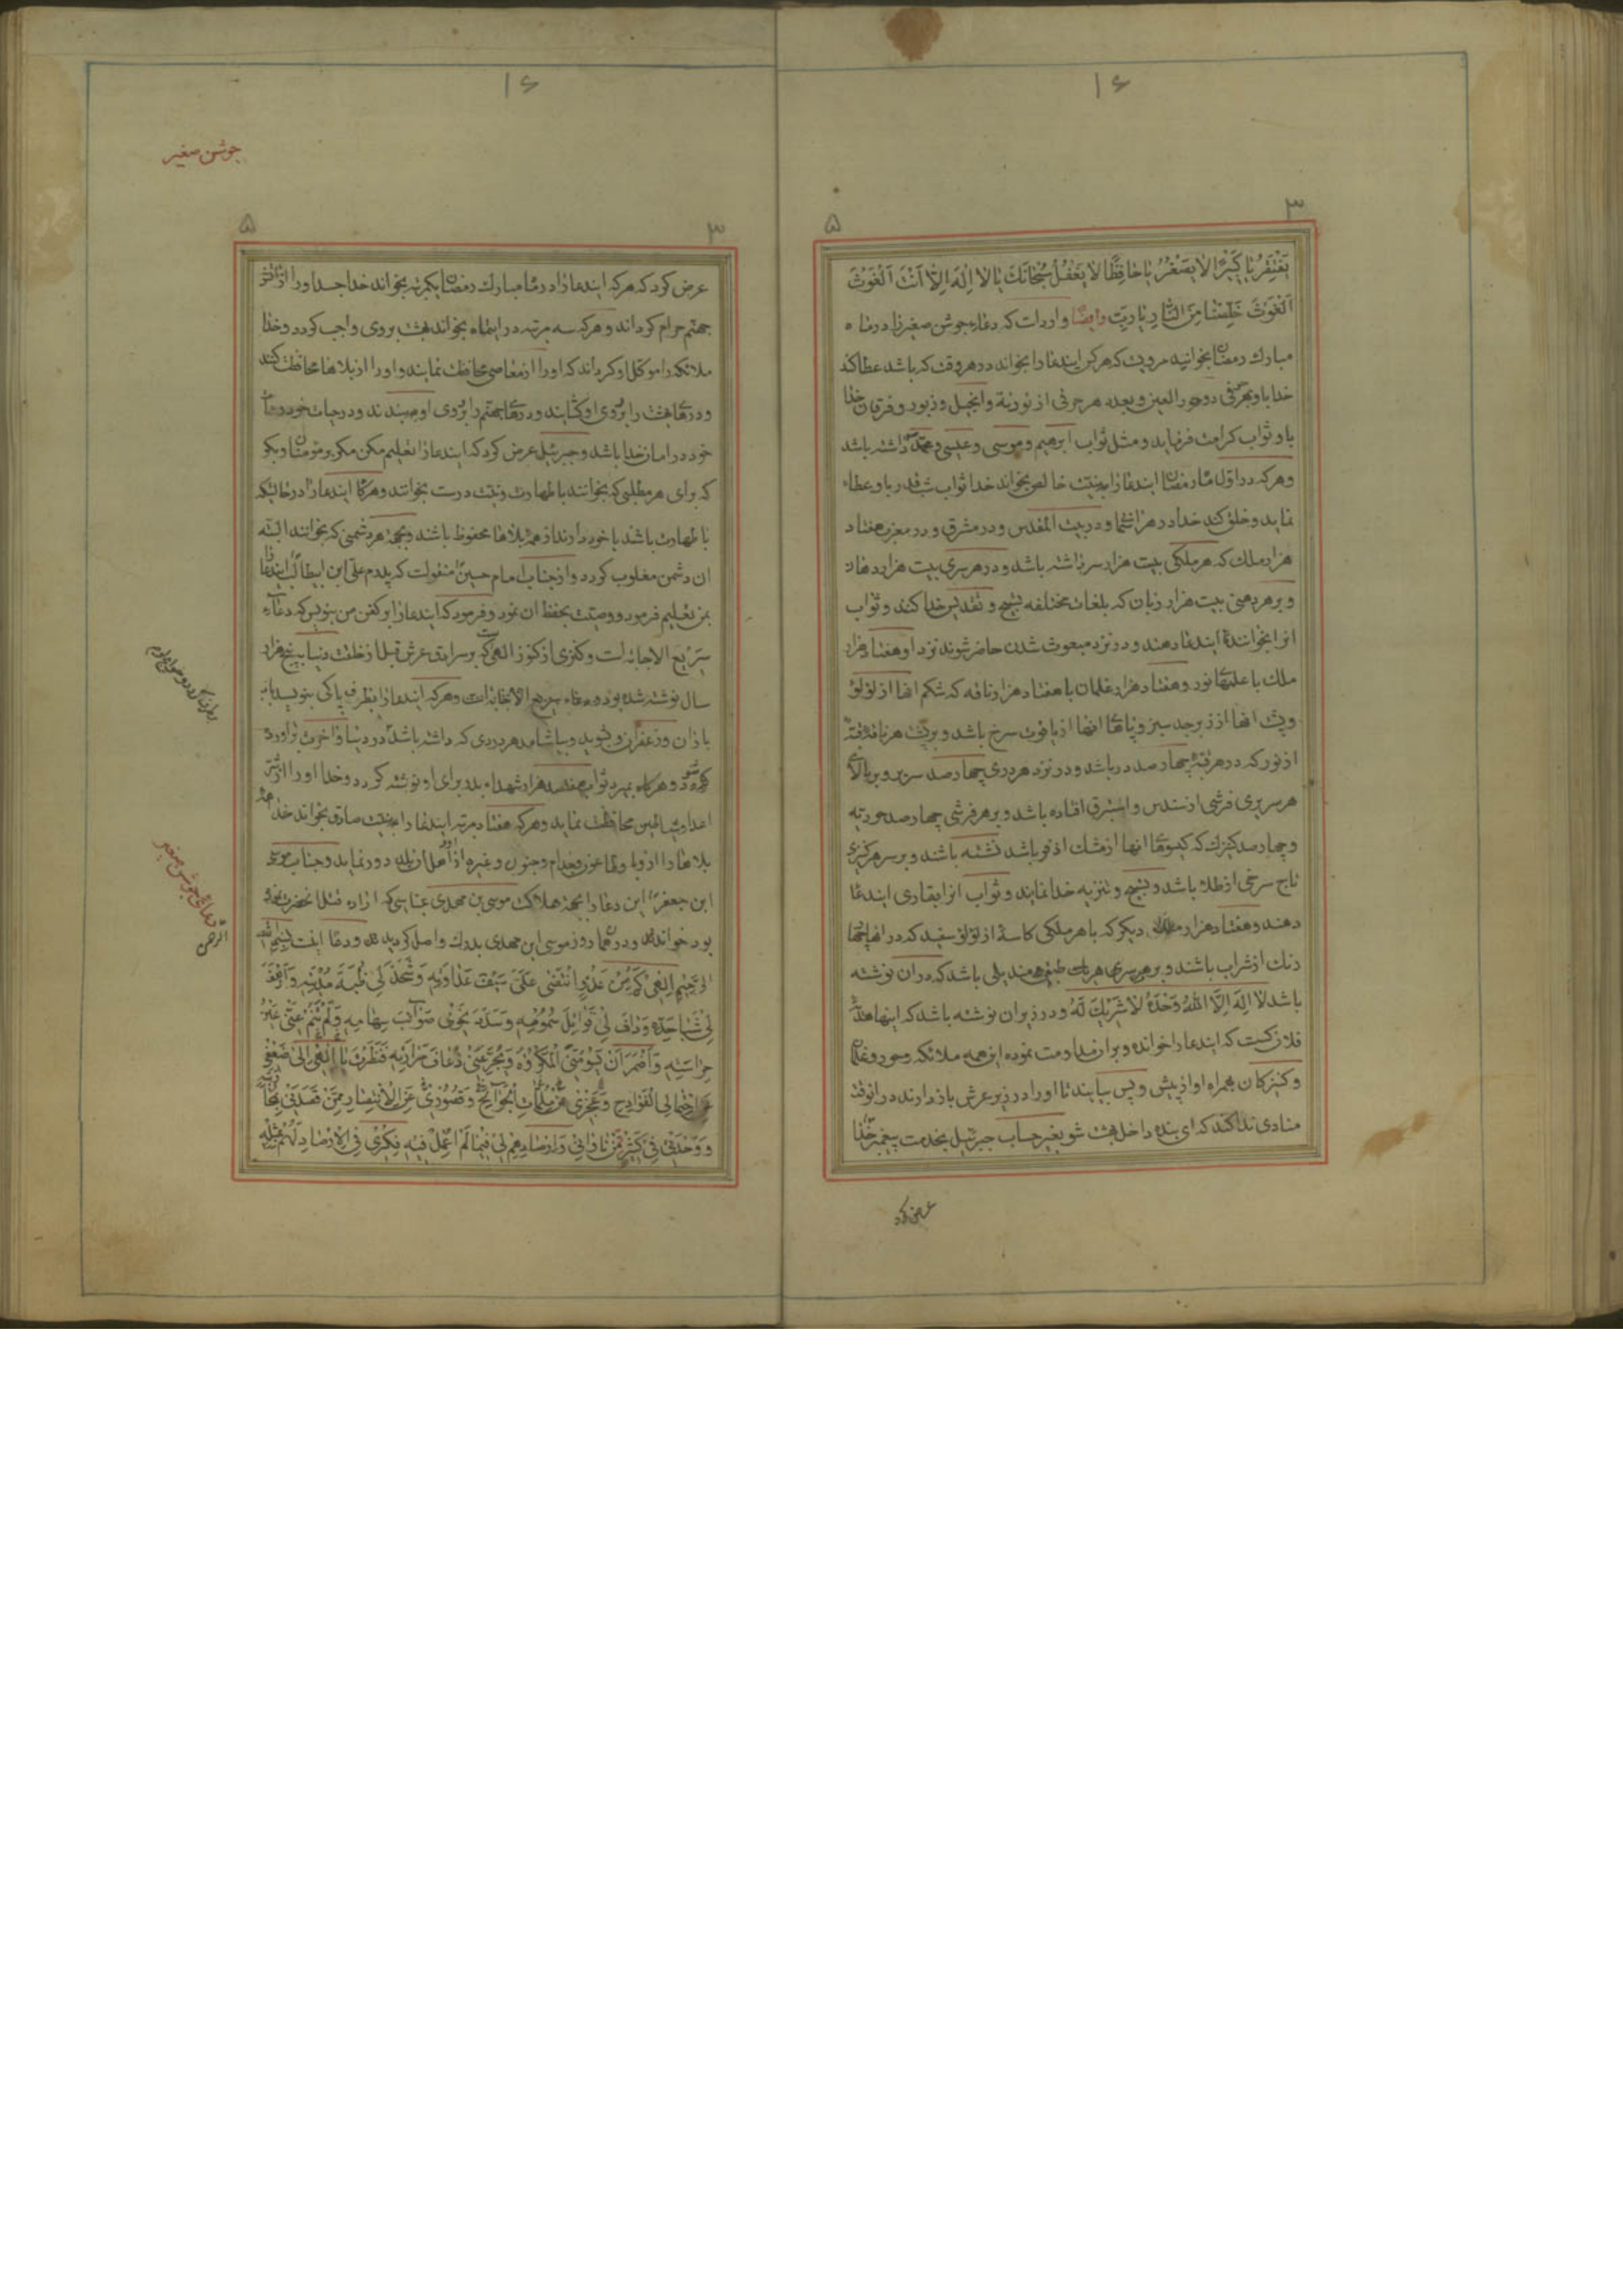 ۱۶
۳
۵
یَفْتَقِرُ یا کَبیرًا لا یَصْغُرُ یا حافِظًا لا یَغْفُلُ سُبْحانَكَ یا لا اِلٰهَ اِلّا اَنْتَ اَلْغَوْثَ
اَلْغَوْثَ خَلِّصْنا مِنَ النّارِ یا رَبِّ وایضًا وارداست که دعاء جوشن صغیر را در ماه
مبارك رمضان بخوانید مرویست که هرکس ایندعا را بخواند در هر وقت که باشد عطا کند
خدا باو بهر حرفی دو حور العین و بعدد هر حرفی از توریة و انجیل و زبور و فرقان خدا
باو ثواب کرامت فرماید و مثل ثواب ابرهیم و موسی و عیسی و محمد داشته باشد
وهرکه در اوّل ماه رمضان ایندعا را به نیت خالص بخواند خدا ثواب شبقدر باو عطاء
نماید و خلق کند خدا در هر آسمان و در بیت المقدس و در مشرق و در مغرب هفتاد
هزار ملك که هر ملکی بیست هزار سر داشته باشد و در هر سری بیست هزار دهان
و در هر دهنی بیست هزار زبان که بلغات مختلفه تسبیح و تقدیس خدا کنند و ثواب
انرا بخوانندهٔ ایندعا دهند و در نزد مبعوث شدن حاضر شوند نزد او هفتاد هزار
ملك با علمهای نور و هفتاد هزار غلمان با هفتاد هزار ناقه که شکم انها از لؤلؤ
وپشت انها از زبرجد سبز و پاهای انها از یاقوت سرخ باشد و بر پشت هر ناقه قبّه
از نور که در هر قبّهٔ چهار صد در باشد و در نزد هر دری چهار صد سریر و بر بالای
هر سریری فرشی از سندس و استبرق افتاده باشد و بر هر فرشی چهار صد حوریّه
و چهار صد کنیزك که گیسوهای انها از مشك اذفر باشد نشسته باشند و بر سر هر کنیزی
تاج سرخی از طلا باشد و تسبیح و تنزیه خدا نمایند و ثواب انرا بقاری ایندعا
دهند و هفتاد هزار ملك دیگر که با هر ملکی کاسهٔ از لؤلؤ سفید که در انها
رنك از شراب باشند و بر هر سری باشد که در ان نوشته
باشد لا اِلهَ اِلّا اللهُ وَحْدَهُ لا شَریكَ لَهُ و در زیر ان نوشته باشد که اینها هدیه
فلان کس است که ایندعا را خوانده و بران مداومت نموده این همه ملائکه و حور و غلمان
و کنیزکان همراه او از پیش و پس بیایند تا او را در زیر عرش باز دارند در انوقت
منادی ندا کند که ای بنده داخل بهشت شو بغیر حساب جبرئیل بخدمت پیغمبر خدا
عرض کرد
۱۶
جوشن صغیر
۳
۵
عرض کرد که هرکه ایندعا را در ماه مبارك رمضان یکمرتبه بخواند خدا جسد او را از اتش
جهنم حرام گرداند و هرکه سه مرتبه در اینماه بخواند بهشت بروی واجب گردد و خدا
ملائکه را موکّل او گرداند که او را از معاصی محافظت نمایند و او را از بلاها محافظت کنند
و درهای بهشت را بروی او گشایند و درهای جهنم را بروی او ببندند و در حیات خود و ممات
خود در امان خدا باشد و جبرئیل عرض کرد که ایندعا را تعلیم مکن مگر بر مؤمنان و بگو
که برای هر مطلبی که بخوانند با طهارت و نیت درست بخوانند و هرگاه ایندعا را در حالتیکه
با طهارت باشد با خود دارند از همهٔ بلاها محفوظ باشند و بجهة هر دشمنی که بخوانند البتّه
ان دشمن مغلوب گردد و از جناب امام حسین منقولست که پدرم علی ابن ابیطالب ایندعا را
بمن تعلیم فرمود و وصیّت بحفظ ان نمود و فرمود که ایندعا را بر کفن من بنویس که دعاء
سریع الاجابه است و کنزی از کنوز الهی که بر سرادق عرش قبل از خلقت دنیا به پنج هزار
سال نوشته شده بود و دعاء سریع الاجابه است و هرکه ایندعا را بظرف پاکی بنویسد بآب
باران و زعفران و بشوید و بیاشامد هر دردی که داشته باشد در دنیا و اخرت
و هرگاه بمیرد ثواب هفتصد هزار شهداء بدر برای او نوشته گردد و خدا او را از شرّ
اعدا و شیاطین محافظت نماید و هرکه هفتاد مرتبه ایندعا را به نیت صادق بخواند خدا همه
بلاها را از وبا و طاعون و جذام و جنون و غیره از او و اهل ان بلد دور نماید و جناب موسی
ابن جعفر این دعا را بجهة هلاکت موسی بن مهدی عباسی که اراده قتل انحضرت نموده
بود خواندند و در همان روز موسی ابن مهدی بدرك واصل گردید و دعا اینست بسم الله
الرحیم اِلهی کَمْ مِنْ عَدُوٍّ انْتَضی عَلَیَّ سَیْفَ عَداوَتِهِ وَشَحَذَ لی ظُبَةَ مُدْیَتِهِ وَاَرْهَفَ
لی شَباحَدِّهِ وَدافَ لی قَواتِلَ سُمُومِهِ وَسَدَّدَ نَحْوی صَوآئِبَ سِهامِهِ وَلَمْ تَنَمْ عَنّی عَیْنُ
حِراسَتِهِ وَاَضْمَرَ اَنْ یَسُومَنِی الْمَکْرُوهَ وَیُجَرِّعَنی ذُعافَ مَرارَتِهِ فَنَظَرْتَ یا اِلهی اِلی ضَعْفی
عَنِ احْتِمالِ الْفَوادِحِ وَعَجْزی عَنْ مُلِمّاتِ الْجَوآئِحِ وَقُصُوری عَنِ الاْنْتِصارِ مِمَّنْ قَصَدَنی
وَوَحْدَتی فی کَثیرٍ مِمَّنْ ناوانی وَاَرْصادِهِمْ لی فیما لَمْ اُعْمِلْ فیهِ فِکْری فِی الاْرْصادِ لَهُمْ بِمِثْلِهِ
دعای جوشن صغیر